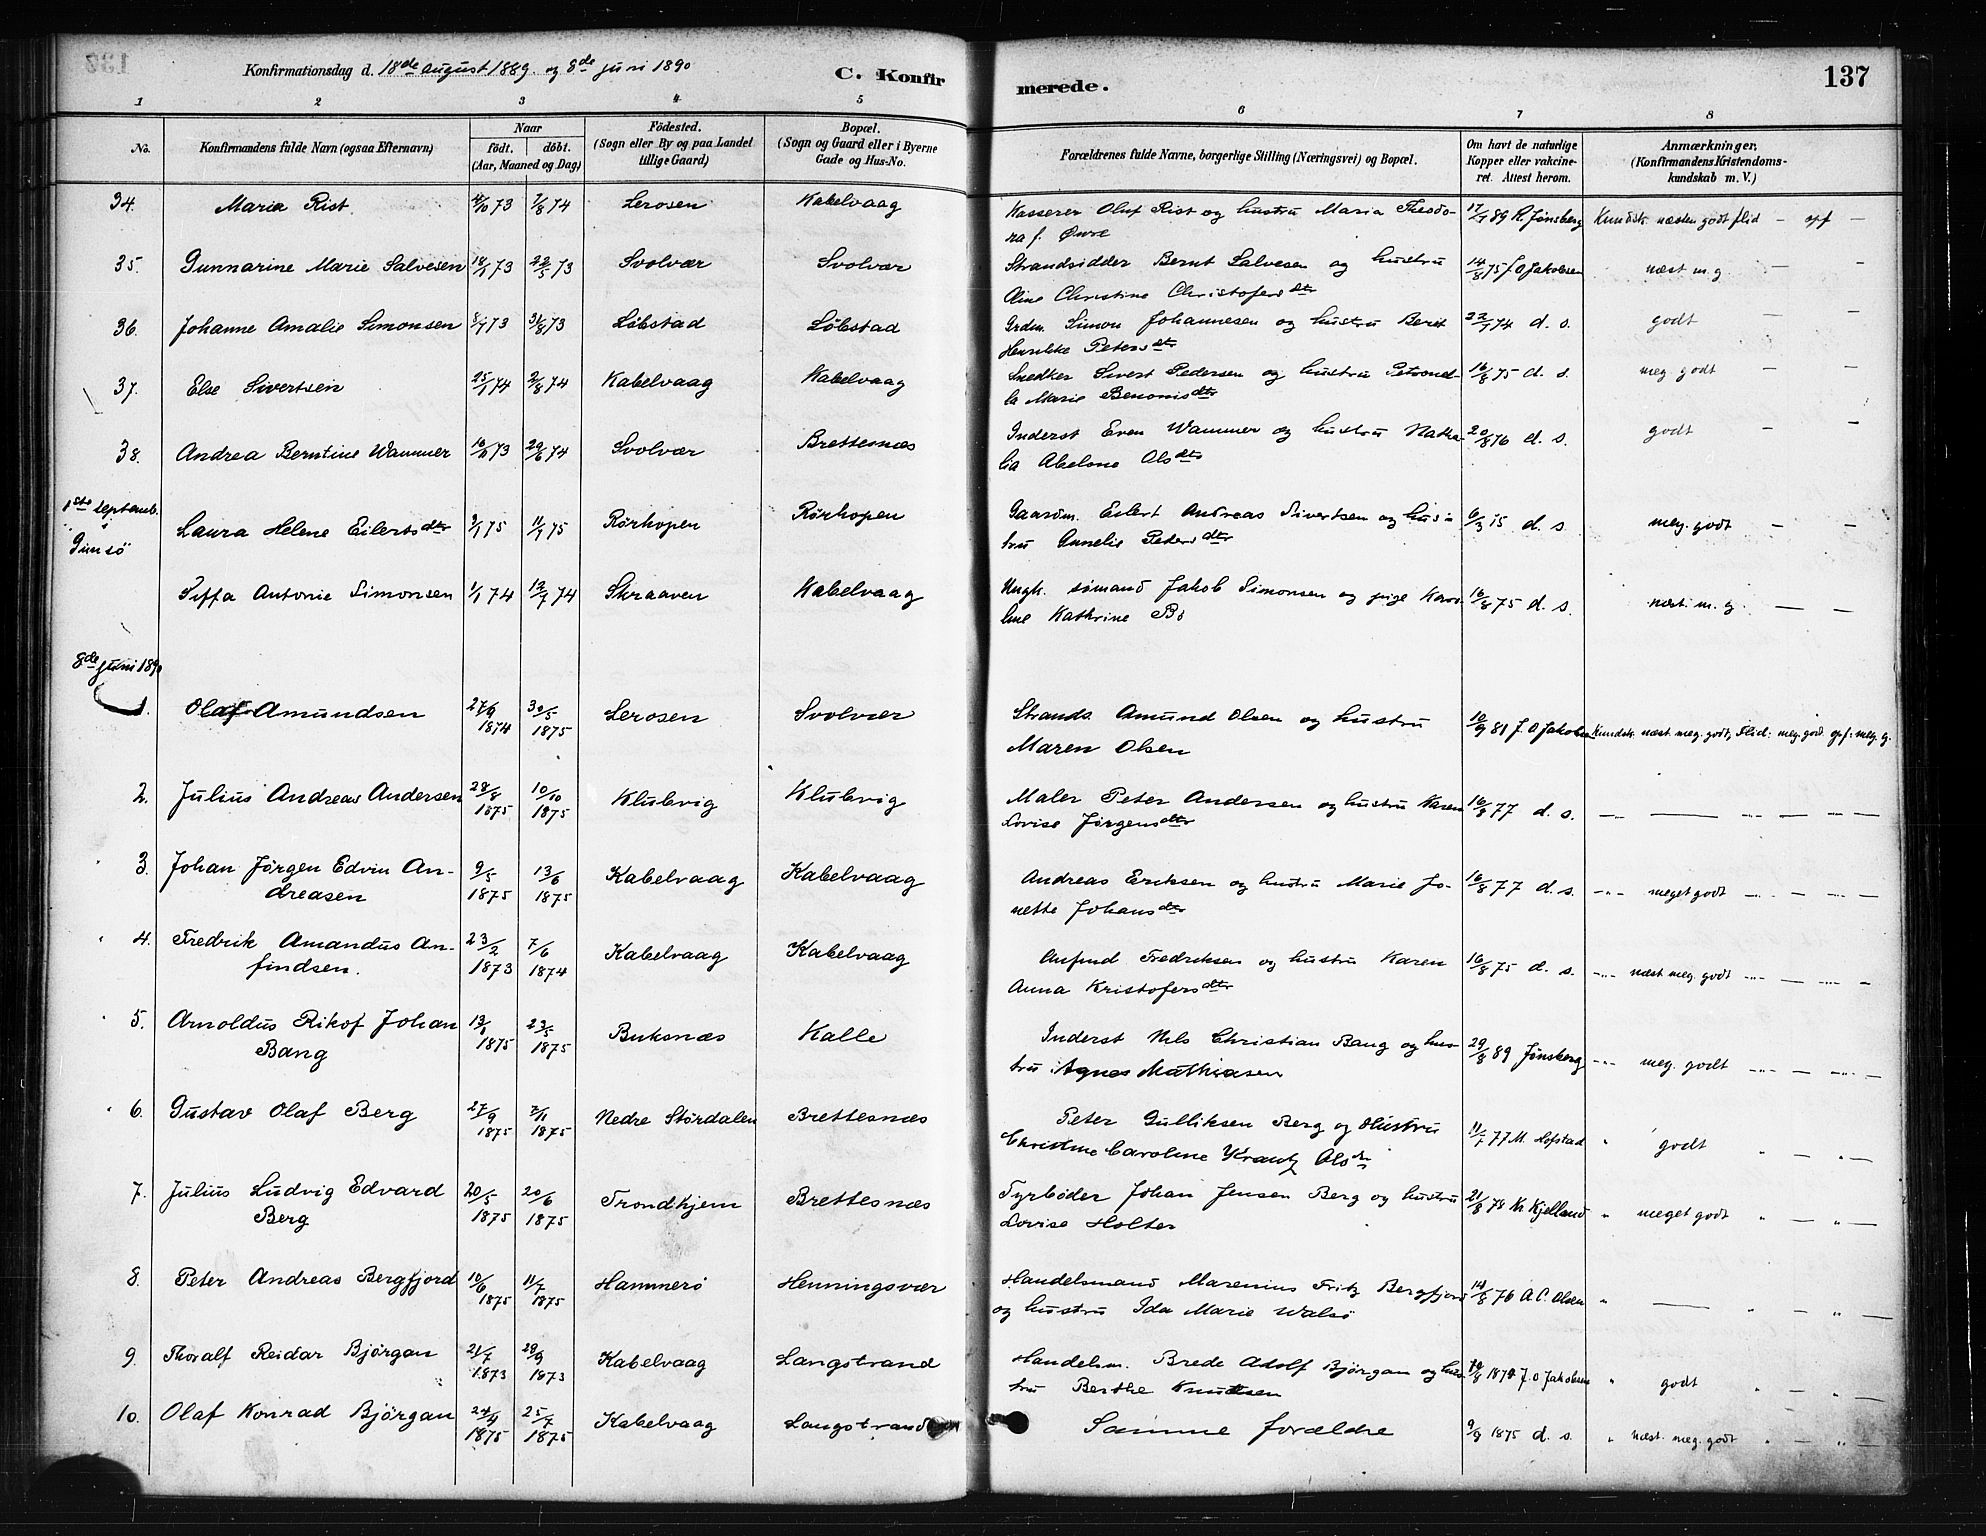 Konfirmationsdag d. 18de august 1889. og 8de juni 1890
C. Konfirmerede.
137
1 2 3 4 5 6 7 8
No.
Konfirmandens fulde Navn (ogsaa Efternavn)
Naar
født. døbt.
(Aar, Maaned og Dag)
Fødested.
(Sogn eller By og paa Landet
tillige Gaard)
Bopæl.
(Sogn og Gaard eller i Byerne
Gade og Hus-No.
Forældrenes fulde Navne, borgerlige Stilling (Næringsvei) og Bopæl.
Om havt de naturlige
Kopper eller vakcine-
ret. Attest herom.
Anmærkninger,
(Konfirmandens Kristendoms-
kundskab m. V.)
34. Maria Rist 7/8 74 Lerosen Kabelvaag Kasserer Oluf Rist og hustru Maria Theodo- 89 R. Jønsberg Kundsk. næsten godt flid - opf -
ra f. Øvre
35. Gunnarine Marie Salvesen 18/1 73 22/5 73 Svolvær Svolvær Strandsidder Bernt Salvesen og hustru 14/8 75 J. O. Jakobsen næst m.g. - -
Oline Christine Christofersdtr
36. Johanne Amalie Simonsen 8/7 73 31/8 73 Løbstad Løbstad Grdm. Simon Johannesen og hustru Berit 22/1 74 d. s. godt - -
Henrikke Petersdtr
37. Else Sivertsen 25/1 74 2/8 74 Kabelvaag Kabelvaag Snedker Sivert Pedersen og hustru Petronel- 16/8 75 d. s. meg godt - -
la Marie Benonisdtr
38. Andrea Berntine Wammer 73 29/6 74 Svolvær Brettesnæs Inderst Even Wammer og hustru Natha- 20/8 76 d. s. godt - -
lia Abelone Olsdtr
1ste septemb.
i
Gimsö
Laura Helene Eilertsdtr 75 11/7 75 Rørhopen Rørhopen Gaardm. Eilert Andreas Sivertsen og hus- 6/3 d. s. meg. godt - -
tru Petersdtr
Antonie Simonsen 1/1 74 12/7 74 Skraaven Kabelvaag Ungk. sømand Jakob Simonsen og pige Karo- 16/8 75 d. s. næst. m. g. - -
line Kathrine Bø
8de juni 1890
1. Olaf Amundsen 27/9 1874 30/5 1875 Lerosen Svolvær Strands. Amund Olsen og hustru 10/9 81 J. O Jakobsen Kundsk. næst meg. godt, flid: meg. god. opf: meg. g.
Maren Olsen
2. Julius Andreas Andersen 28/8 1875 10/10 1875 Klubvig Klubvig Maler Peter Andersen og hustru Karen 16/8 77 d. s. -"- — -"- — -"- —
Lovise Jørgensdtr
3. Johan Jørgen Edvin An- 9/5 1875 13/6 1875 Kabelvaag Kabelvaag Andreas Eriksen og hustru Marie Jo- 16/8 77 d. s. -"- meget godt -"- — -"- —
dreasen nette Johansdtr
4. Fredrik Amandus An- 23/2 1873 7/6 1874 Kabelvaag Kabelvaag Anfind Fredriksen og hustru Karen 16/8 75 d. s. -"- næst meg. godt -"- — -"- —
findsen. Anna Kristofersdtr
5. Arnoldus Rikof Johan 1875 23/5 1875 Buksnæs Kalle Inderst Nils Christian Bang og hus- 29/8 89 Jønsberg -"- meg. godt -"- — -"- —
Bang tru Agnes Mathiasen
6. Gustav Olaf Berg 27/9 1875 7/11 1875 Nedre Størdalen Brettesnæs Peter Gulliksen Berg og Hustru 11/7 77 M. Hofstad " godt " — " —
Christine Caroline Krantz Olsdtr
7. Julius Ludvig Edvard 20/5 1875 20/6 1875 Trondhjem Brettesnæs Fyrbøder Johan Jensen Berg og hustru 21/8 78 Kr Kjelland " meget godt " — " —
Berg Lovise Holter
8. Peter Andreas Bergfjord 10/6 1875 11/7 1875 Hammerö Henningsvær Handelsmand Marenius Fritz Bergfjord 14/8 76 A. C. Olsen " — " — " —
og hustru Ida Marie Walsö
9. Thoralf Reidar Björgan 21/7 1873 28/9 1873 Kabelvaag Langstrand Handelsm. Brede Adolf Björgan og hus- J. O Jakobsen " godt " — " —
tru Berthe Knudtsen
10. Olaf Konrad Björgan 24/4 1875 25/7 1875 Kabelvaag Langstrand Samme forældre 9/8 1875 d. s. " næst. meg. godt " — " —